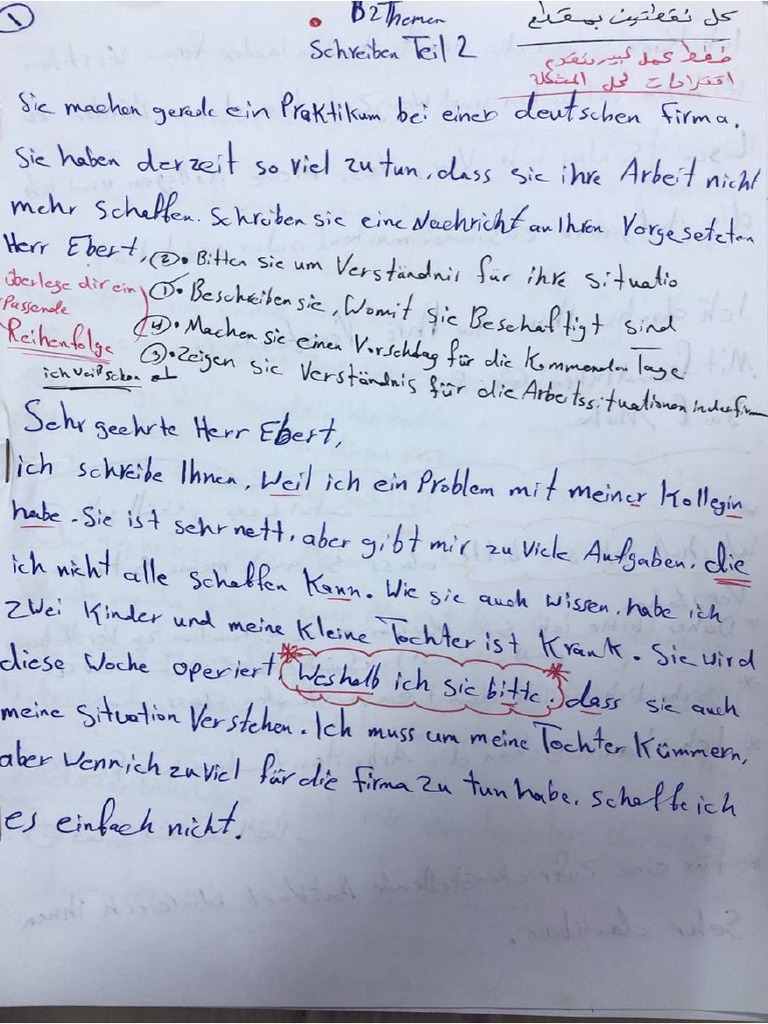 1
B2 Themen
Schreiben Teil 2
كل نقطتين بمقطع
فقط عمل تعبير وتقدم
اقتراحات لحل المشكلة
Sie machen gerade ein Praktikum bei einer deutschen Firma.
Sie haben derzeit so viel zu tun, dass sie ihre Arbeit nicht
mehr schaffen. Schreiben sie eine Nachricht an Ihren Vorgesetzten
Herr Ebert,
② • Bitten sie um Verständnis für ihre situatio
① • Beschreiben sie, womit sie Beschäftigt sind
④ • Machen sie einen Vorschlag für die Kommenden Tage
③ • Zeigen sie Verständnis für die Arbeitssituationen in der Firm
überlege dir ein
Passende
Reihenfolge
ich weiß schon
Sehr geehrte Herr Ebert,
ich schreibe Ihnen, weil ich ein Problem mit meiner Kollegin
habe. Sie ist sehr nett, aber gibt mir zu viele Aufgaben, die
ich nicht alle schaffen kann. Wie sie auch wissen, habe ich
zwei Kinder und meine kleine Tochter ist Krank. Sie wird
diese Woche operiert weshalb ich sie bitte, dass sie auch
meine Situation Verstehen. Ich muss um meine Tochter Kümmern,
aber wenn ich zu viel für die Firma zu tun habe, schaffe ich
es einfach nicht.